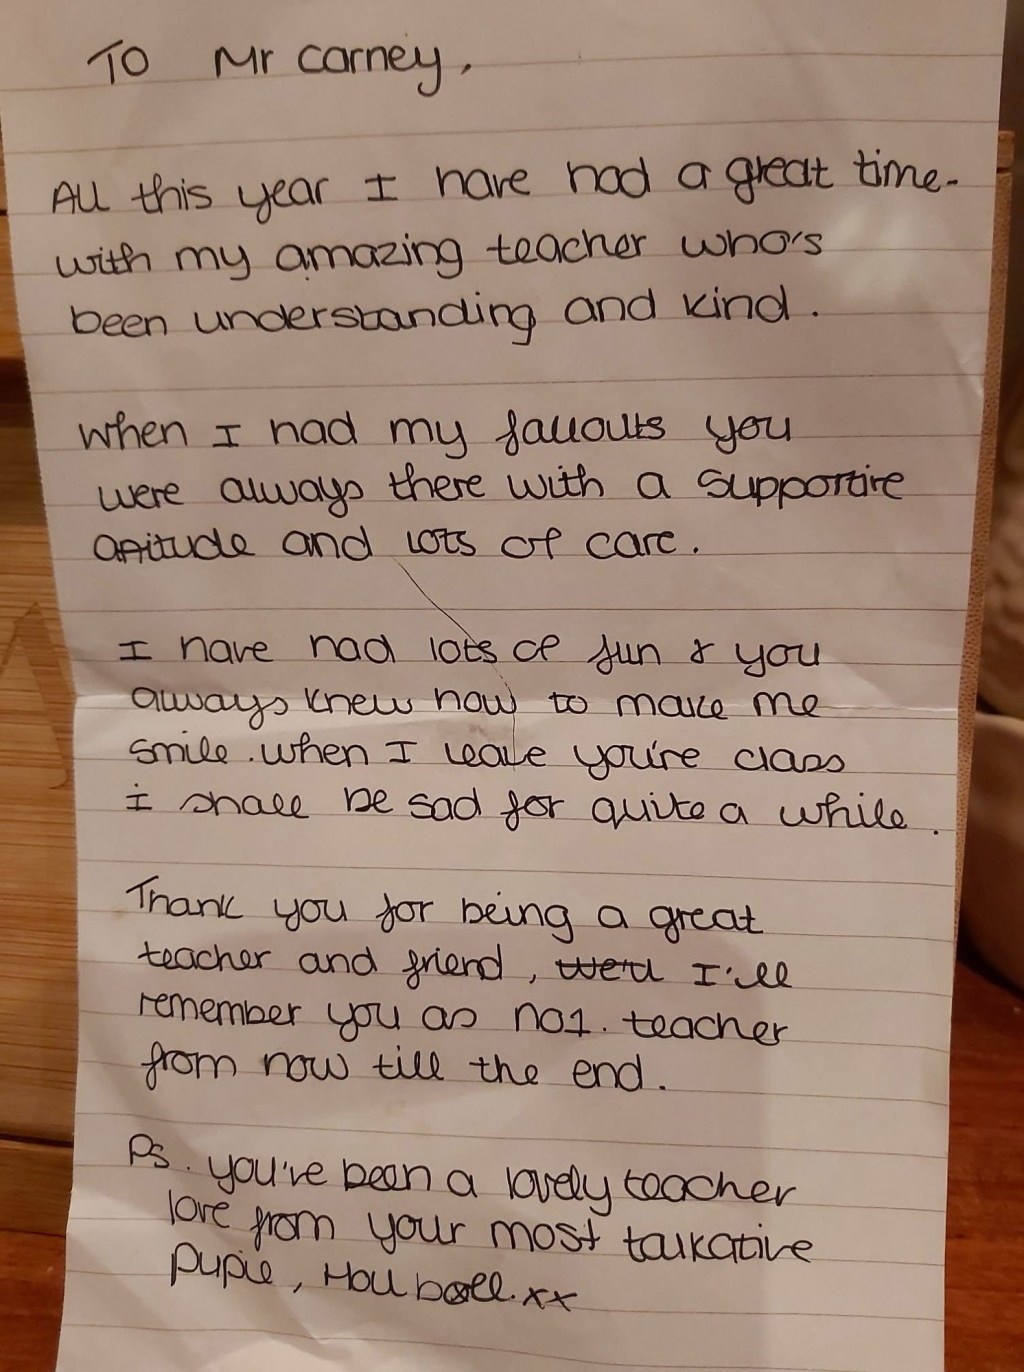 To Mr Carney,
All this year I have had a great time.
with my amazing teacher who's
been understanding and kind.
When I had my fallouts you
were always there with a supportive
apitude and lots of care.
I have had lots of fun & you
always knew how to make me
smile. when I leave you're class
i shall be sad for quite a while.
Thank you for being a great
teacher and friend, we'll I'll
remember you as no1. teacher
from now till the end.
Ps. you've been a lovely teacher
love from your most talkative
pupie, xx